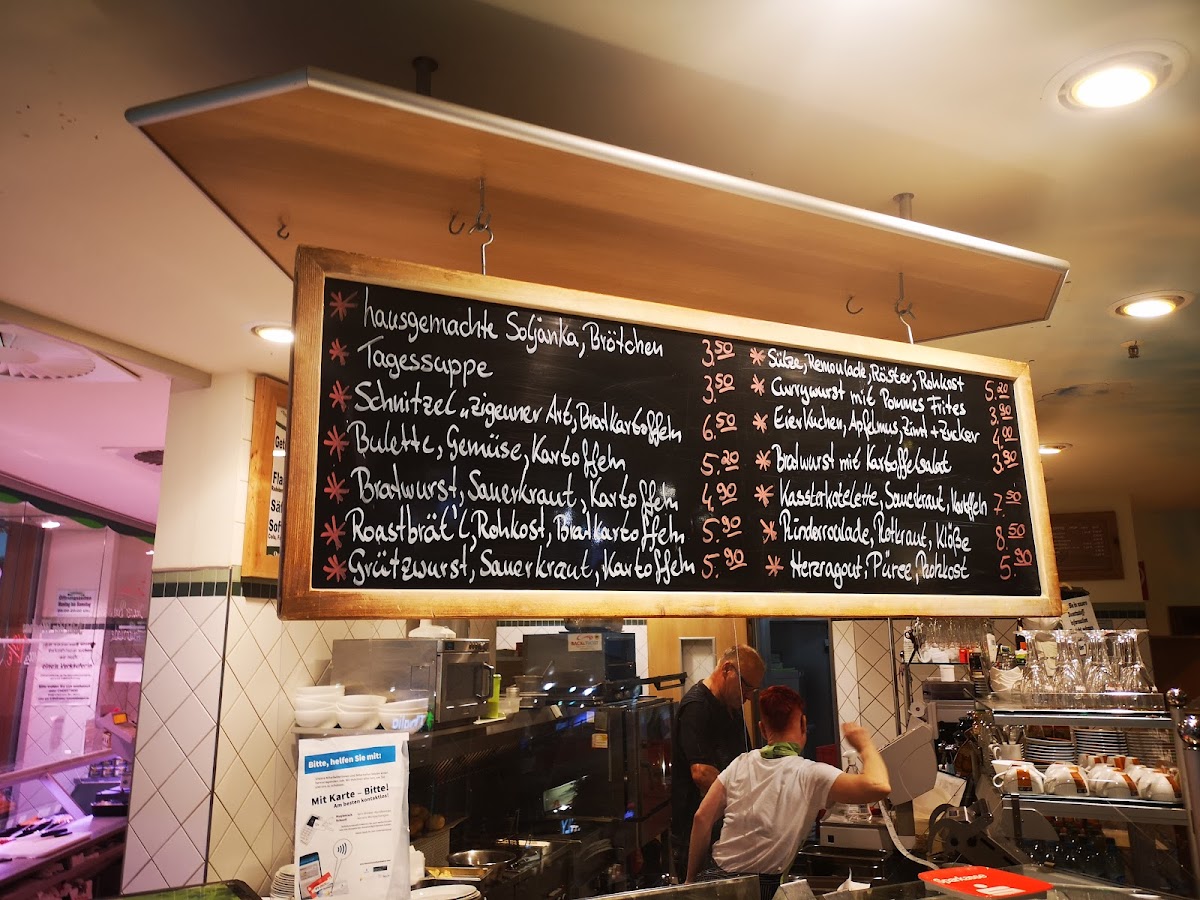 hausgemachte Soljanka, Brötchen 3.50
Tagessuppe 3.50
Schnitzel „Zigeuner Art, Bratkartoffeln 6.50
Bulette, Gemüse, Kartoffeln 5.20
Bratwurst, Sauerkraut, Kartoffeln 4.90
Roastbrät'l, Rohkost, Bratkartoffeln 5.90
Grützwurst, Sauerkraut, Kartoffeln 5.90
Sülze, Remoulade, Röster, Rohkost 5.20
Currywurst mit Pommes Frites 3.90
Eierkuchen, Apfelmus, Zimt + Zucker 4.00
Bratwurst mit Kartoffelsalat 3.90
Kasslerkotelette, Sauerkraut, Kartoffeln 7.50
Rinderroulade, Rotkraut, Klöße 8.50
Herzragout, Püree, Rohkost 5.90
Bitte, helfen Sie mit!
Mit Karte – Bitte!
Am besten kontaktlos!
Sparkasse